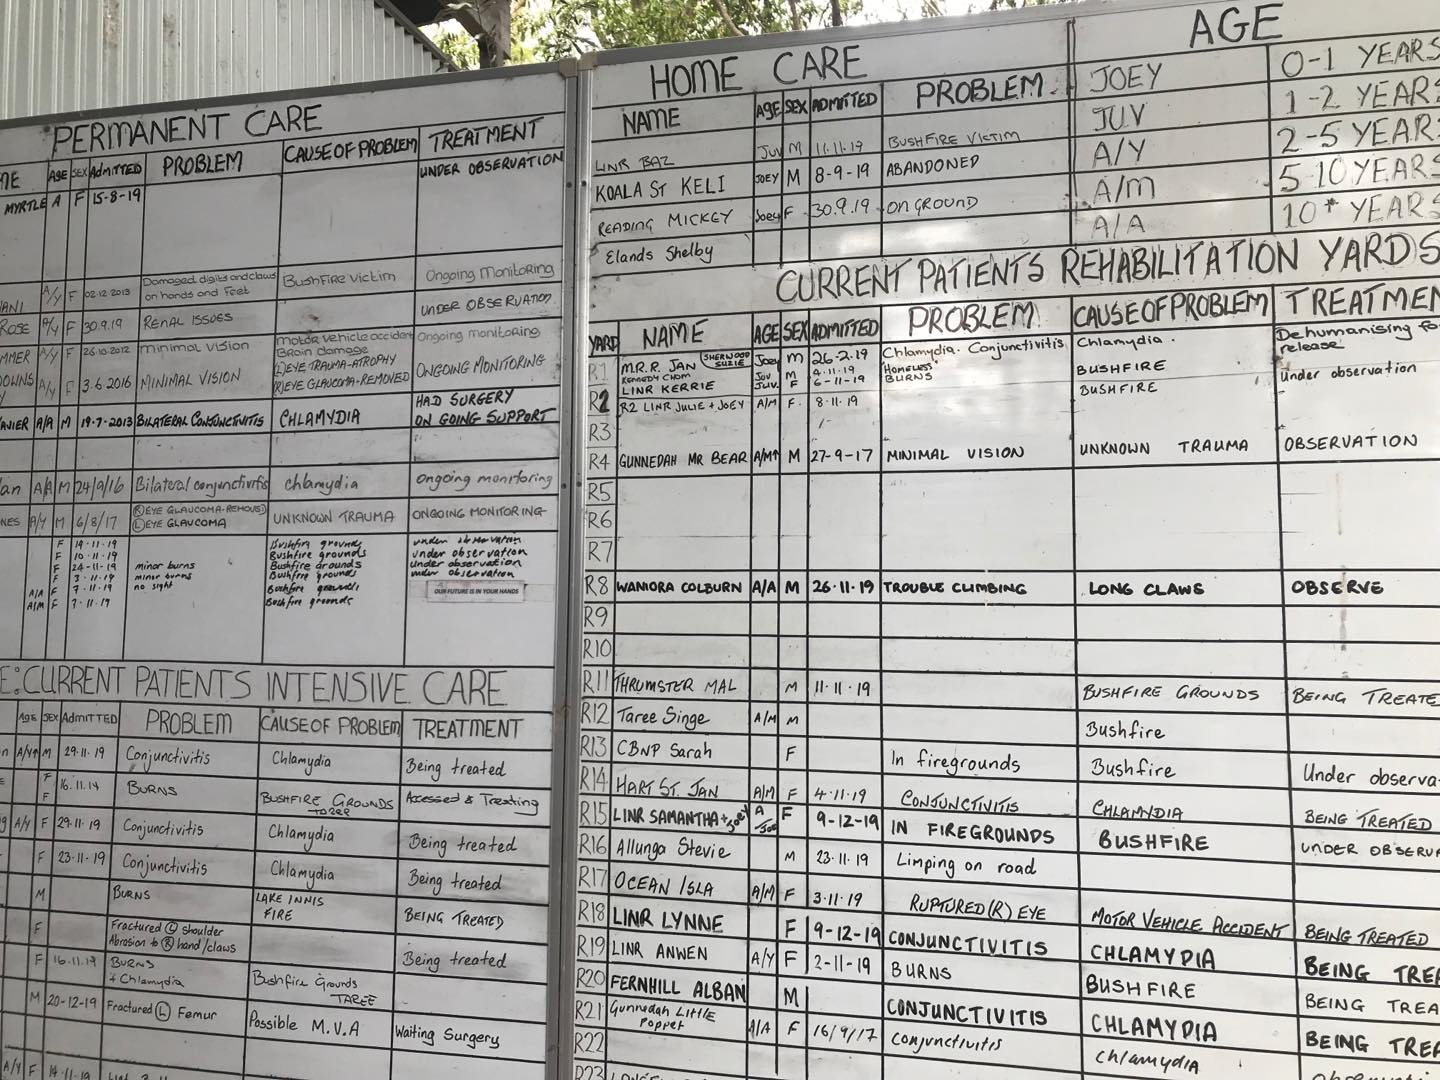 PERMANENT CARE
ME AGE SEX ADMITTED PROBLEM CAUSE OF PROBLEM TREATMENT
MYRTLE A F 15-8-19 UNDER OBSERVATION
ANI A/Y F 02-12-2013 Damaged digits and claws on hands and Feet Bushfire Victim Ongoing Monitoring
ROSE A/Y F 30.9.19 RENAL ISSUES UNDER OBSERVATION
MMER A/Y F 26-10-2012 Minimal Vision Motor Vehicle accident Brain damage Ongoing monitoring
DOWNS A/Y F 3.6 2016 MINIMAL VISION (L) EYE TRAUMA-ATROPHY (R) EYE GLAUCOMA-REMOVED ONGOING MONITORING
AVIER A/A M 19-7-2013 BILATERAL CONJUNCTIVITIS CHLAMYDIA HAD SURGERY ON GOING SUPPORT
lan A/A M 24/9/16 Bilateral conjunctivitis chlamydia Ongoing monitoring
NES A/Y M 6/8/17 (R) EYE GLAUCOMA-REMOVED (L) EYE GLAUCOMA UNKNOWN TRAUMA ONGOING MONITORING
F 19-11-19 Bushfire grounds under observation
F 10-11-19 Bushfire grounds under observation
F 24-11-19 minor burns Bushfire grounds under observation
F 3-11-19 minor burns Bushfire grounds under observation
A/A F 7-11-19 no sight Bushfire grounds
A/M F 7-11-19 Bushfire grounds
OUR FUTURE IS IN YOUR HANDS
E: CURRENT PATIENTS INTENSIVE CARE
AGE SEX ADMITTED PROBLEM CAUSE OF PROBLEM TREATMENT
M 29.11.19 Conjunctivitis Chlamydia Being treated
F 16.11.19 BURNS BUSHFIRE GROUNDS Accessed & Treating
F
A/Y F 29.11.19 Conjunctivitis Chlamydia Being treated
F 23.11.19 Conjunctivitis Chlamydia Being treated
M BURNS LAKE INNIS FIRE BEING TREATED
F Fractured (L) shoulder Abrasion to (R) hand/claws Being treated
F 16.11.19 BURNS + Chlamydia Bushfire Grounds TAREE
M 20-12-19 Fractured (L) Femur Possible M.V.A Waiting Surgery
A/Y F 14-11-19
HOME CARE
NAME AGE SEX ADMITTED PROBLEM
LINR BAZ JUV M 11.11.19 BUSHFIRE VICTIM
KOALA ST KELI JOEY M 8-9-19 ABANDONED
READING MICKEY Joey F 30.9.19 ON GROUND
Elands Shelby
AGE
JOEY 0-1 YEARS
JUV 1-2 YEARS
A/Y 2-5 YEARS
A/M 5-10 YEARS
A/A 10+ YEARS
CURRENT PATIENTS REHABILITATION YARDS
YARD NAME AGE SEX ADMITTED PROBLEM CAUSE OF PROBLEM TREATMEN
R1 M.R.R. JAN SHERWOOD SUZIE Joey M 26-2-19 Chlamydia. Conjunctivitis Chlamydia. Dehumanising for release
KENNEDY CHOM JUV M 4-11-19 HOMELESS BUSHFIRE Under observation
LINR KERRIE JUV. F 6-11-19 BURNS BUSHFIRE
R2 R2 LINR JULIE + JOEY A/M F. 8-11-19
R3
R4 GUNNEDAH MR BEAR M 27-9-17 MINIMAL VISION UNKNOWN TRAUMA OBSERVATION
R5
R6
R7
R8 WANIORA COLBURN A/A M 26-11-19 TROUBLE CLIMBING LONG CLAWS OBSERVE
R9
R10
R11 THRUMSTER MAL M 11-11-19 BUSHFIRE GROUNDS BEING TREATE
R12 Taree Singe A/M M Bushfire
R13 CBNP Sarah F In firegrounds Bushfire Under observa
R14 HART ST. JAN A/M F 4-11-19 CONJUNCTIVITIS CHLAMYDIA BEING TREATED
R15 LINR SAMANTHA + JOEY A/Joey F 9-12-19 IN FIREGROUNDS BUSHFIRE UNDER OBSERVA
R16 Allunga Stevie M 23.11.19 Limping on road
R17 OCEAN ISLA A/M F 3-11-19 RUPTURED (R) EYE MOTOR VEHICLE ACCIDENT BEING TREATED
R18 LINR LYNNE F 9-12-19 CONJUNCTIVITIS CHLAMYDIA BEING TREA
R19 LINR ANWEN A/Y F 2-11-19 BURNS BUSHFIRE BEING TREA
R20 FERNHILL ALBAN M CONJUNCTIVITIS CHLAMYDIA BEING TREA
R21 Gunnedah Little Poppet A/A F 16/9/17 Conjunctivitis Chlamydia
R22
R23